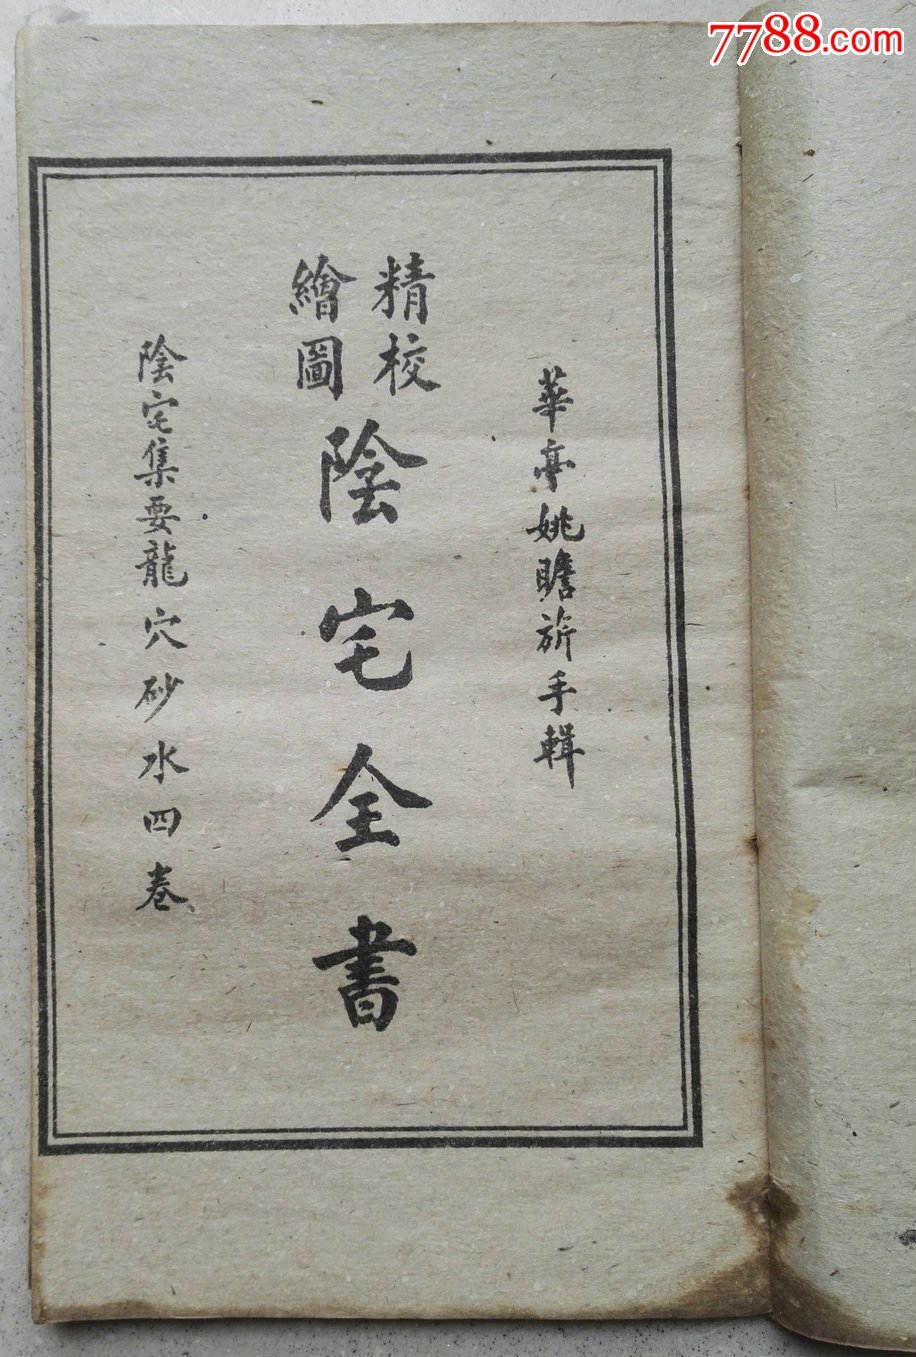 7788.com
華亭姚瞻旂手輯
精校
繪圖
陰宅全書
陰宅集要龍穴砂水四卷